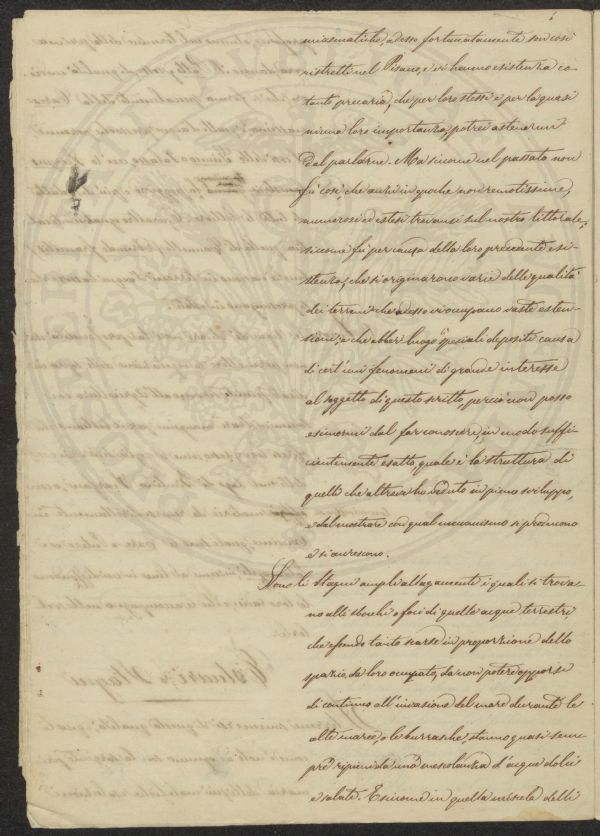 miasmatiche, adesso fortunatamente son così
ristretti nel Pisano, e vi hanno esistenza co-
tanto precaria, che per loro stessi e per la quasi
niuna loro importanza, potrei astenermi
dal parlarne. Ma siccome nel passato non
fù così, che anzi in epoche non remotissime,
numerosi ed estesi trovansi sul nostro littorale,
siccome fù per causa della loro precedente esi-
stenza, che si originarono varie delle qualità
dei terreni che adesso vi occupano vaste esten-
sioni, e che ebber luogo speciali depositi causa
di cert'uni fenomeni di grande interesse
al soggetto di questo scritto, perciò non posso
esimermi dal far conoscere, in modo suffi-
cientemente esatto, quale è la struttura di
quelli che altrove ho veduto in pieno sviluppo,
e dal mostrare con qual meccanismo si producono
e si accrescono.
Sono li Stagni ampli allagamenti i quali si trova-
no alli sbocchi o foci di quelle acque terrestri,
che essendo tanto scarse in proporzione dello
spazio, da loro occupato, da non potere opporsi
di continuo all'invasione del mare durante le
alte maree, o le burrasche stanno quasi sem-
pre ripieni da una mescolanza d'acque dolci
e salate. E siccome in quella miscela delli